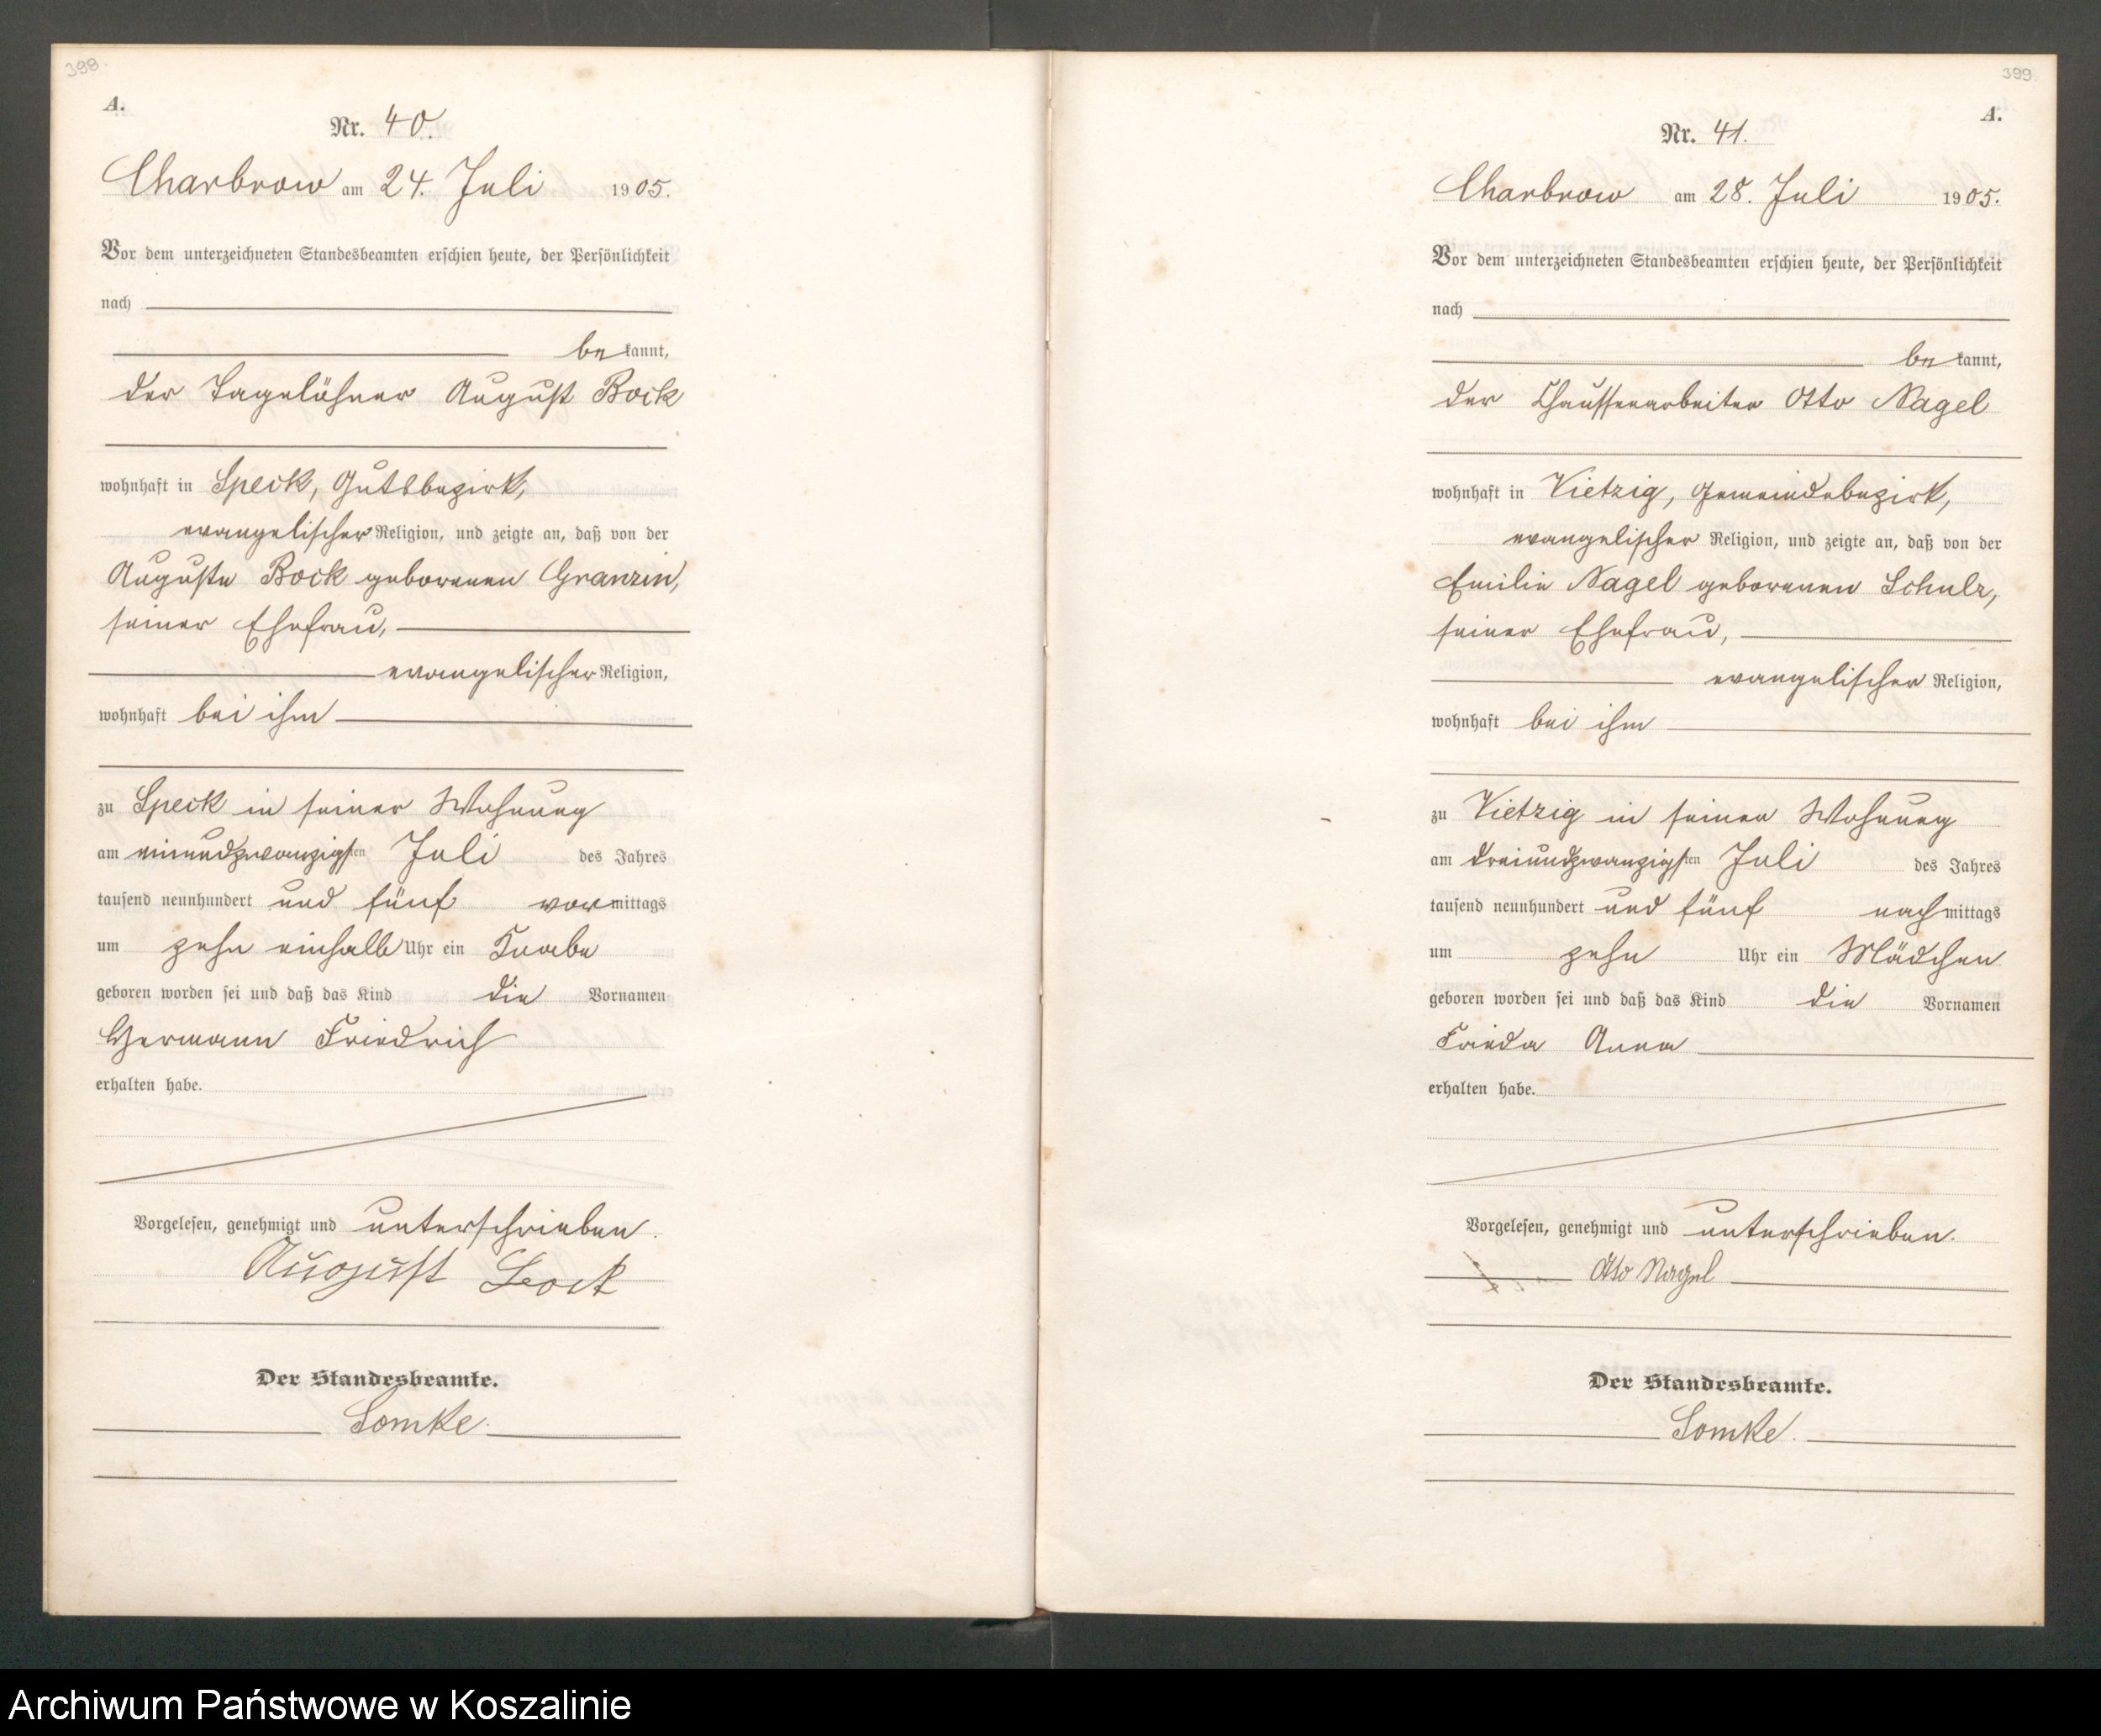 398.
A.
Nr. 40.
Charbrow am 24. Juli 1905.
Vor dem unterzeichneten Standesbeamten erschien heute, der Persönlichkeit
nach
be kannt,
der Tagelöhner August Bock
wohnhaft in Speck, Gutsbezirk,
evangelischer Religion, und zeigte an, daß von der
Auguste Bock geborenen Granzin,
seiner Ehefrau,
evangelischer Religion,
wohnhaft bei ihm
zu Speck in seiner Wohnung
am einundzwanzigsten Juli des Jahres
tausend neunhundert und fünf vormittags
um zehn einhalb Uhr ein Knabe
geboren worden sei und daß das Kind die Vornamen
Hermann Friedrich
erhalten habe.
Vorgelesen, genehmigt und unterschrieben.
August Bock
Der Standesbeamte.
Lomke.
399.
A.
Nr. 41.
Charbrow am 28. Juli 1905.
Vor dem unterzeichneten Standesbeamten erschien heute, der Persönlichkeit
nach
be kannt,
der Chausseearbeiter Otto Nagel
wohnhaft in Vietzig, Gemeindebezirk,
evangelischer Religion, und zeigte an, daß von der
Emilie Nagel geborenen Schulz,
seiner Ehefrau,
evangelischer Religion,
wohnhaft bei ihm
zu Vietzig in seiner Wohnung
am dreiundzwanzigsten Juli des Jahres
tausend neunhundert und fünf nachmittags
um zehn Uhr ein Mädchen
geboren worden sei und daß das Kind die Vornamen
Frieda Anna
erhalten habe.
Vorgelesen, genehmigt und unterschrieben.
Otto Nagel
Der Standesbeamte.
Lomke.
Archiwum Państwowe w Koszalinie